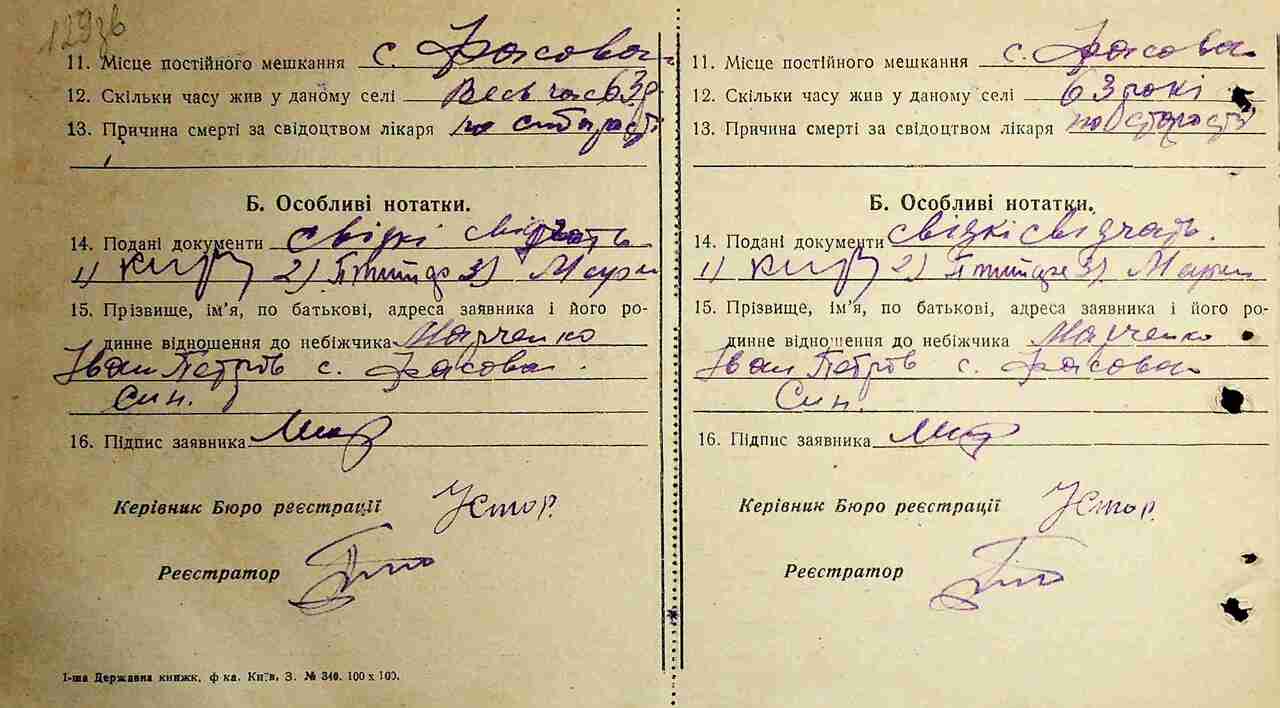 129зв
11. Місце постійного мешкання с. Красовка
12. Скільки часу жив у даному селі Весь час 63 р
13. Причина смерті за свідоцтвом лікаря по старості
Б. Особливі нотатки.
14. Подані документи свідкі свідчать
1) 2) 3)
15. Прізвище, ім'я, по батькові, адреса заявника і його ро-
динне відношення до небіжчика Марченко
Іван Петров с.
Син.
16. Підпис заявника Мар
Керівник Бюро реєстрації
Реєстратор
1-ша Державна книжк. ф-ка. Київ, З. № 340. 100 х 100.
11. Місце постійного мешкання с.
12. Скільки часу жив у даному селі 63 рокі
13. Причина смерті за свідоцтвом лікаря по старості
Б. Особливі нотатки.
14. Подані документи свідкі свідчать.
1) 2) 3)
15. Прізвище, ім'я, по батькові, адреса заявника і його ро-
динне відношення до небіжчика Марченко
Іван Петров с.
Син.
16. Підпис заявника Мар
Керівник Бюро реєстрації
Реєстратор